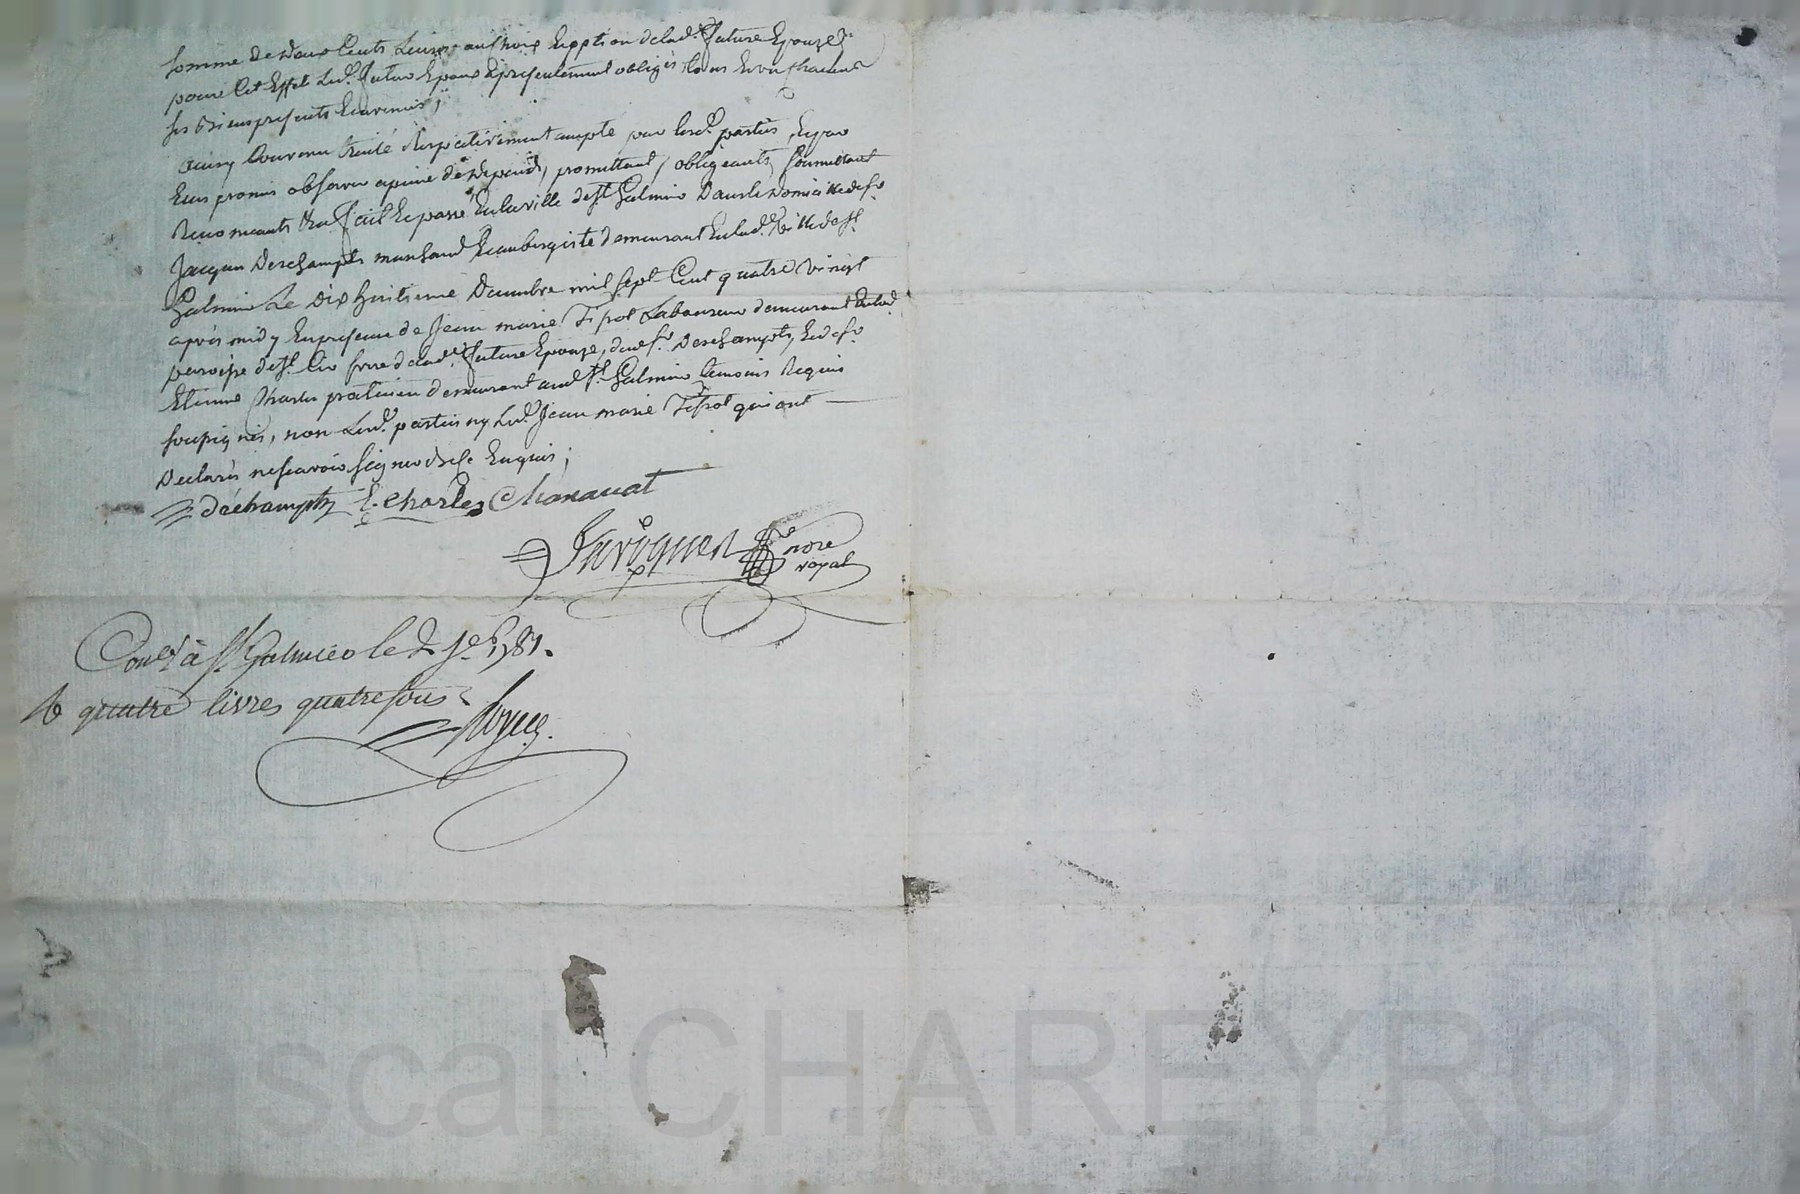 somme de deux Cents Livres au choix Et option de lad.e future Epouze Et
pour Cet Effet Led. futur Epoux a presentement obligés tous Et un chacuns
ses Biens presents Et avenirs ;
ainsy Convenu traité respectivement accepté par lesd. parties, Et par
Eux promis observer a peine de depends, promettant, obligeants, soumettant
Renonceants &ca fait Et passé En la ville de St Galmier Dans le Domicille de sr.
Jacques Deschampts marchand Et aubergiste demeurant En lad. ville de St.
Galmier Le Dix huitieme Decembre mil sept Cent quatre vingt
après midy En presence de Jean marie Laboureur demeurant En lad.
paroisse de St. frere de lad.e future Epouze, dud. sr. Deschampts, Et de sr.
Etienne Charles praticien demeurant aud. St. Galmier temoins Requis
soussignés, non Lesd. parties ny Led. Jean marie qui ont
Declarés ne scavoir signer de ce Enquis ;
Dechampts E. Charles Chanavat
nore
royal
Con.lé à St. Galmier le 2 Je. 1781.
R quatre livres quatre sous